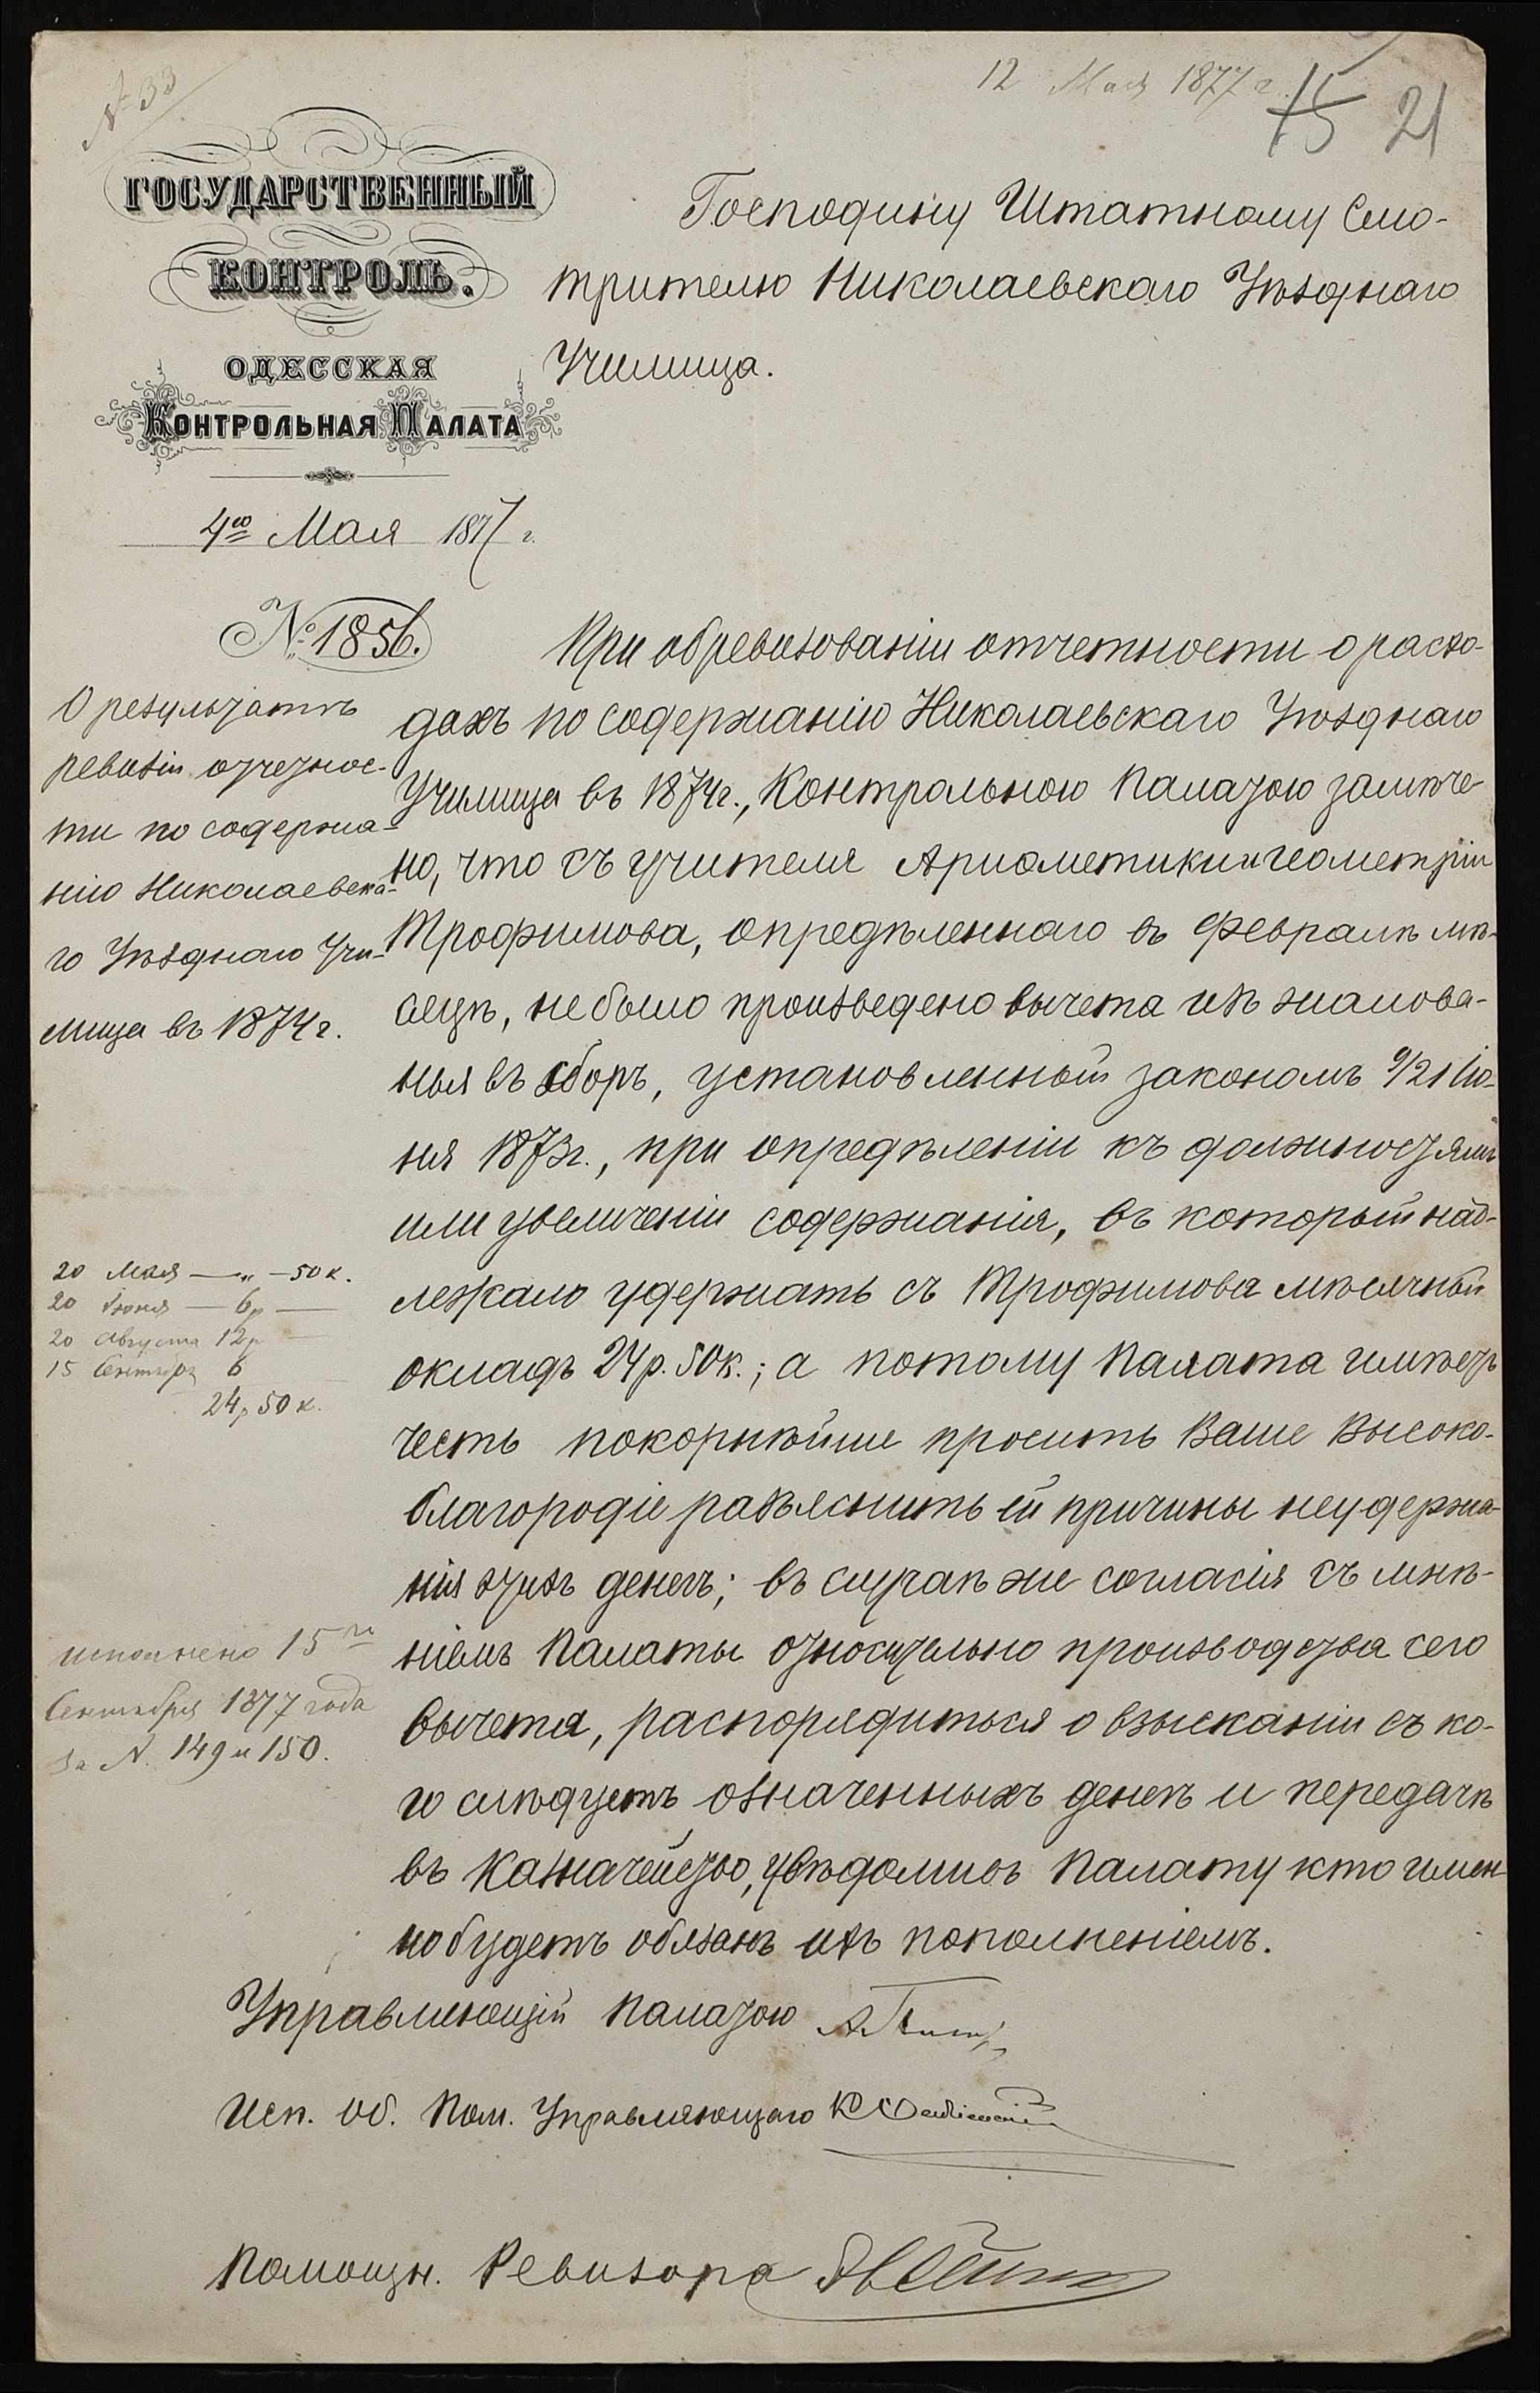 № 33
12 Мая 1877 г.
15 21
ГОСУДАРСТВЕННЫЙ
КОНТРОЛЬ.
ОДЕССКАЯ
КОНТРОЛЬНАЯ ПАЛАТА
4го Мая 1877 г.
№ 1856.
О результатѣ
ревизіи отчетнос-
ти по содержа-
нію Николаевска-
го Уѣзднаго Учи-
лища въ 1874 г.
Господину Штатному Смо-
трителю Николаевскаго Уѣзднаго
Училища.
При обревизованіи отчетности о расхо-
дахъ по содержанію Николаевскаго Уѣзднаго
Училища въ 1874 г., Контрольною Палатою замѣче-
но, что съ учителя Ариѳметики и геометріи
Трофимова, опредѣленнаго въ Февралѣ мѣ-
сяцѣ, не было произведено вычета изъ жалова-
нья въ сборъ, установленный закономъ 9/21 Ію-
ня 1873 г., при опредѣленіи къ должностямъ
или увеличеніи содержанія, въ который над-
лежало удержать съ Трофимова мѣсячный
окладъ 24 р. 50 к.; а потому Палата имѣетъ
честь покорнѣйше просить Ваше Высоко-
благородіе разъяснить ей причины неудержа-
нія этихъ денегъ; въ случаѣ же согласія съ мнѣ-
ніемъ Палаты относительно производства сего
вычета, распорядиться о взысканіи съ ко-
го слѣдуетъ означенныхъ денегъ и передачѣ
въ Казначейство, увѣдомивъ Палату кто имен-
но будетъ обязанъ ихъ пополненіемъ.
20 Мая — „ — 50 к.
20 Іюня — 6 р —
20 Августа 12 р —
15 Сентябр 6
24 р 50 к.
исполнено 15 го
Сентября 1877 года
за N. 149 и 150.
Управляющій Палатою
Исп. Об. Пом. Управляющаго
Помощн. Ревизора